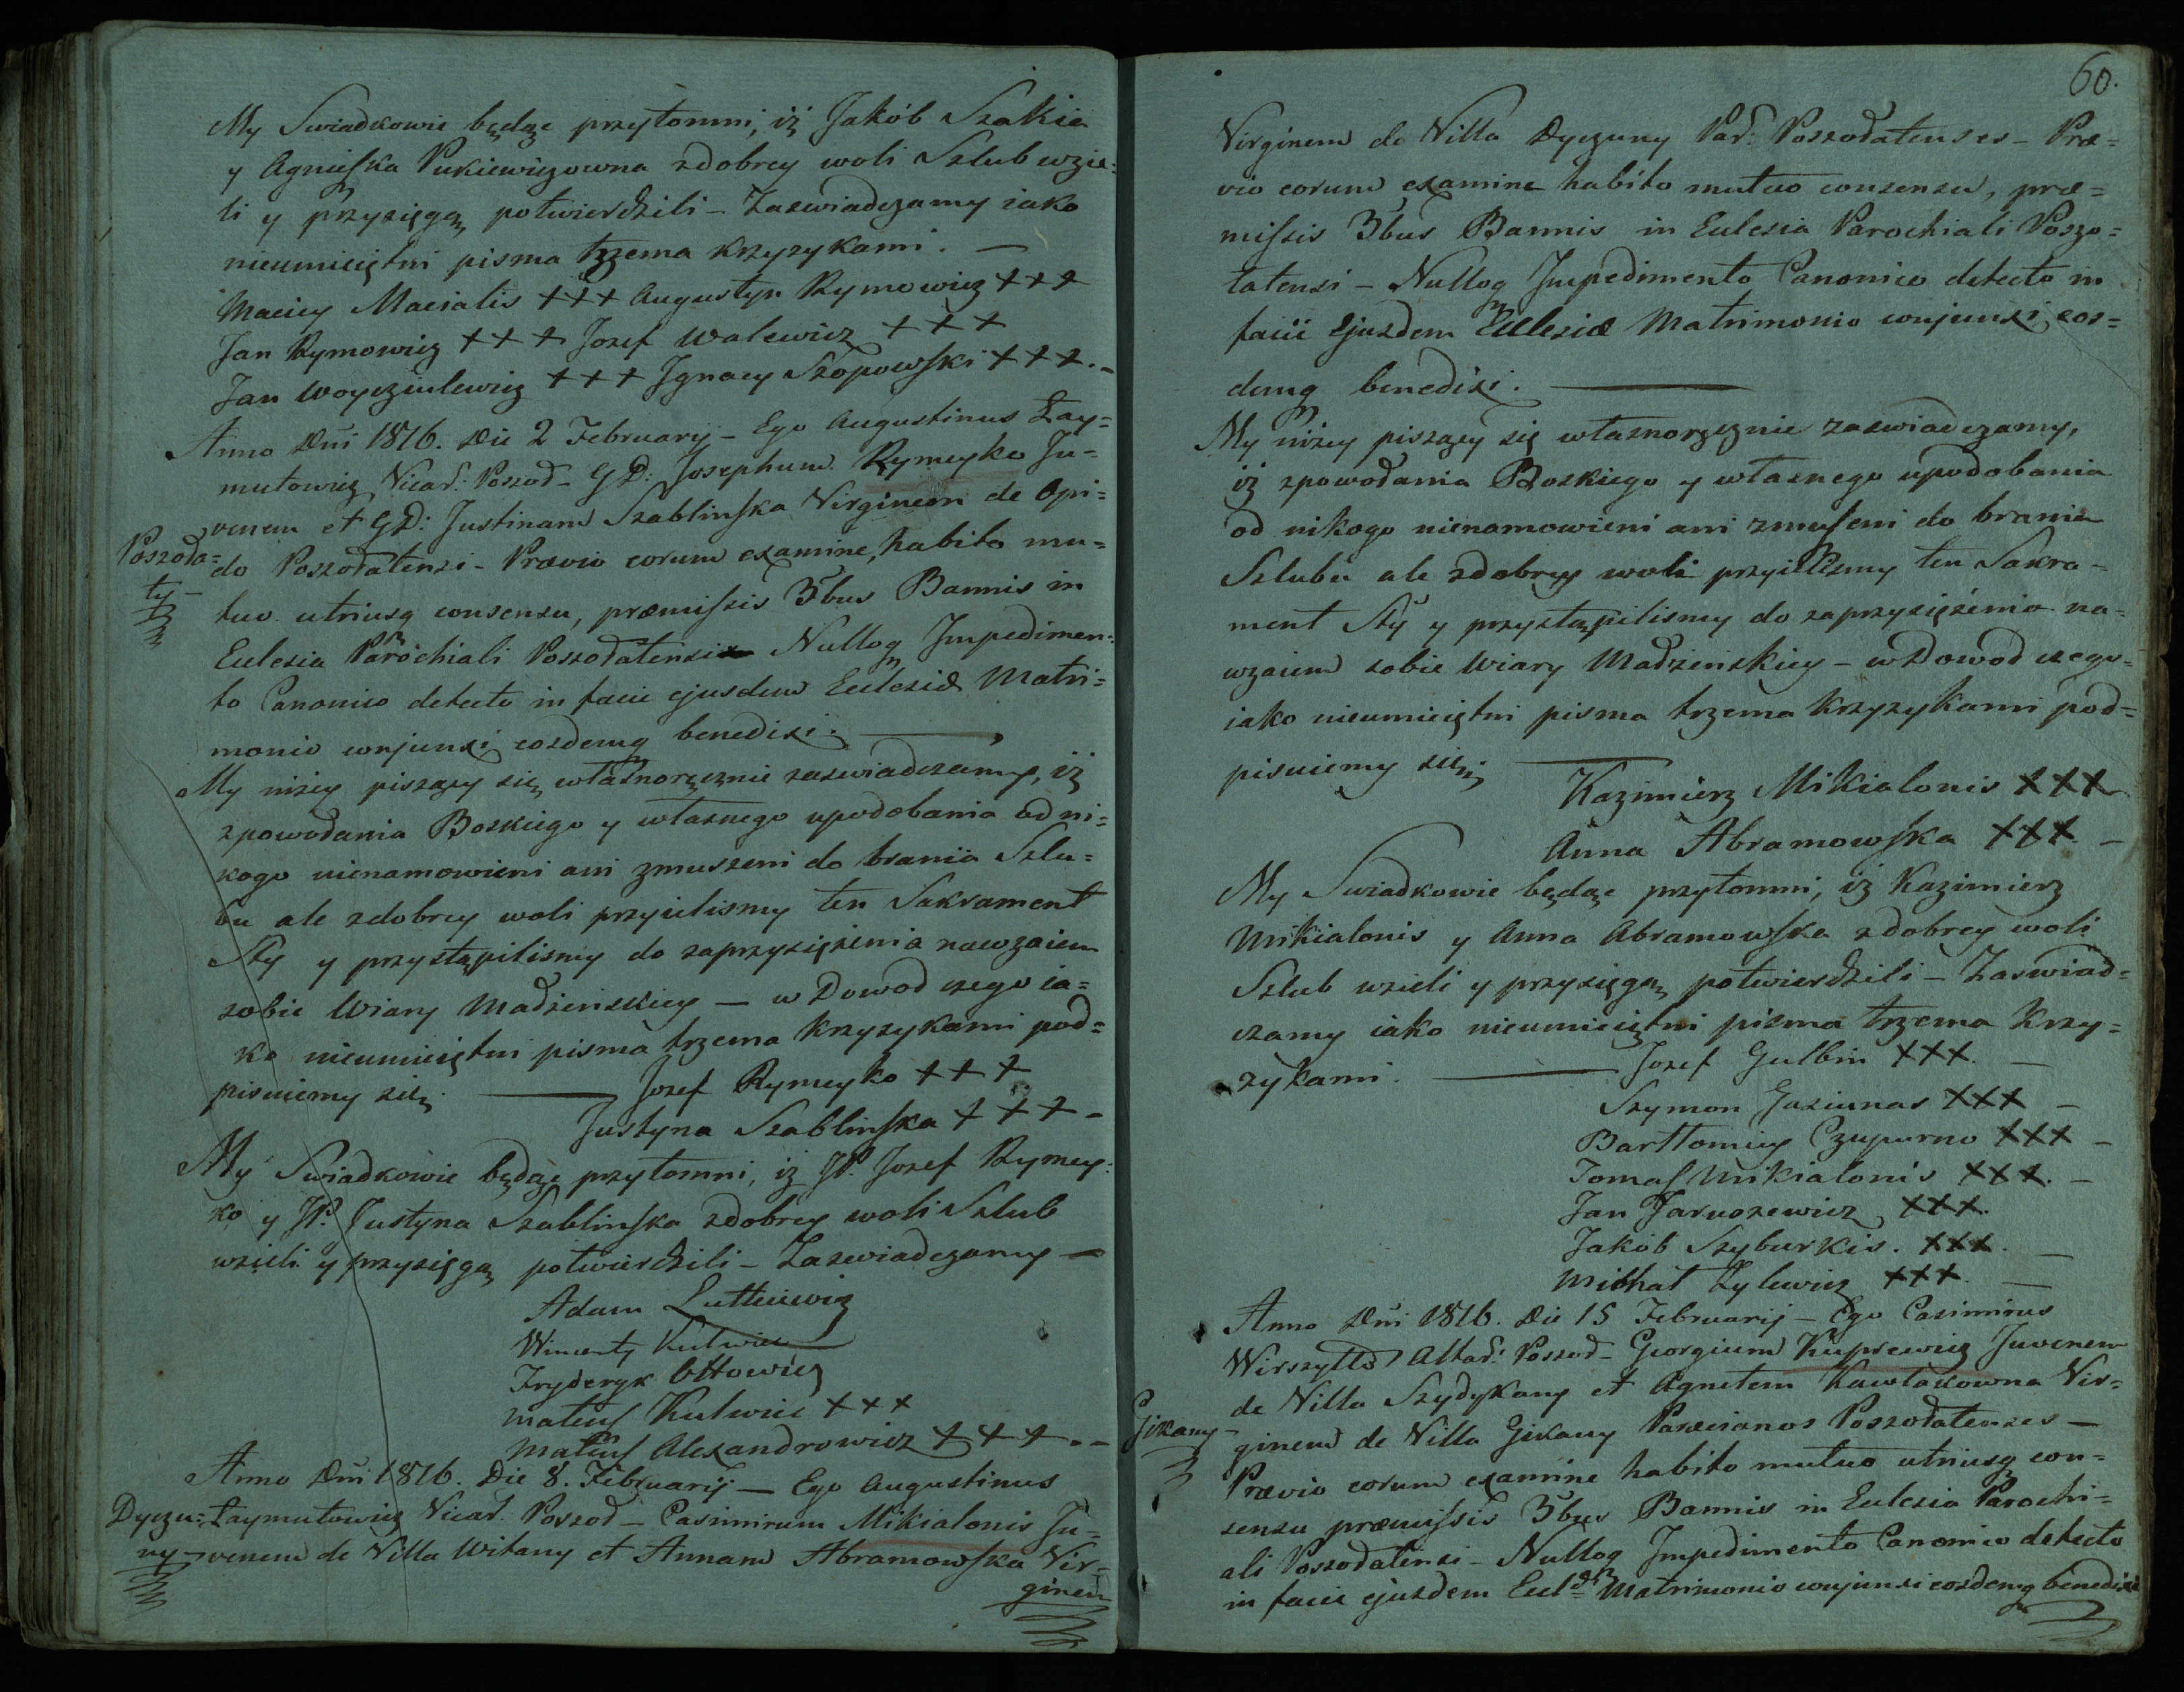 My Swiadkowie będąc przytomni, iż Jakób Szakia
y Agnieszka Pukiewiczowna zdobrey woli Szlub wzie=
li y przysięgą potwierdzili – Zaswiadczamy iako
nieumieiętni pisma trzema Krzyzykami. –
Maciey Macialis +++ Augustyn Rymowicz +++
Jan Rymowicz +++ Jozef Walewicz +++
Jan Woyczulewicz +++ Jgnacy Szopowski +++. –
Anno Dni 1816. Die 2 Februarij – Ego Augustinus Zay=
mutowicz Vicar: Poszod – GD: Josephum Rymeyko Ju=
venem et GD: Justinam Szablinska Virginem de Opi=
Poszoda=
ty –
do Poszodatensi – Prævio eorum examine, habito mu=
tuo utriusq consensu, præmissis 3bus Bannis in
Eclesia Parochiali Poszodatensi Nulloq Jmpedimen=
to Canonico detecto in facie ejusdem Eclesiæ Matri=
monio conjunxi eosdemq benedixi. –
My niżey piszący się własnoręcznie zaswiadczamy, iż
zpowodania Boskiego y własnego upodobania od ni=
kogo nienamowieni ani zmuszeni do brania Szlu=
bu ale zdobrey woli przyielismy ten Sakrament
Sty y przystąpilismy do zaprzysiężenia nawzaiem
sobie Wiary Madzeńskiey – w Dowod czego ia=
ko nieumieiętni pisma trzema krzyzykami pod=
pisuiemy się. – Jozef Rymeyko +++
Justyna Szablinska +++ –
My Swiadkowie będąc przytomni, iz JP. Jozef Rymey=
ko y JP. Justyna Szablinska zdobrey woli Szlub
wzieli y przysięgą potwierdzili – Zaswiadczamy –
Adam Lutkiewicz
Wincenty Kulwiec
Fryderyk Ottowicz
Mateusz Kulwiec +++
Mateusz Alexandrowicz +++. –
Anno Dni 1816. Die 8. Februarij – Ego Augustinus
Dyczu=
ny –
Zaymutowicz Vicar. Poszod – Casimirum Mikialonis Ju=
venem de Villa Witany et Annam Abramowska Vir=
ginem
60.
Virginem de Villa Dyczuny Par: Poszodatenses – Præ=
vio eorum examine habito mutuo consensu, præ=
missis 3bus Bannis in Eclesia Parochiali Poszo=
tatensi – Nulloq Jmpedimento Canonico detecto in
facie Ejusdem Eclesiæ Matrimonio conjunxi eos=
demq benedixi. –
My niżey piszący się własnoręcznie zaswiadczamy,
iż zpowodania Boskiego y własnego upodobania
od nikogo nienamowieni ani zmuszeni do brania
Szlubu ale zdobrey woli przyielismy ten Sakra=
ment Sty y przystąpilismy do zaprzysiężenia na=
wzaiem sobie Wiary Madzeńskiey – w Dowod czego
iako nieumieiętni pisma trzema Krzyzykami pod=
pisuiemy się. –
Kazimierz Mikialonis +++
Anna Abramowska +++. –
My Swiadkowie będąc przytomni, iż Kazimierz
Mikialonis y Anna Abramowska zdobrey woli
Szlub wzieli y przysięgą potwierdzili – Zaswiad=
czamy iako nieumieiętni pisma trzema Krzy=
zykami. – Jozef Gulbin +++. –
Szymon Gaziunas +++ –
Bartłomiey Czupurno +++ –
Tomasz Mikialonis +++. –
Jan Jaruszewicz +++.
Jakób Szyburkis. +++. –
Michał Zylewicz +++. –
Anno Dni 1816. Die 15 Februarij – Ego Casimirus
Wirszyłło Altar: Poszod – Georgium Kuprewicz Juvenem
de Villa Szydykany et Agnetem Kawlakowna Vir=
Gikany –
ginem de Villa Gikany Parecianos Poszodatenses –
Prævio eorum examine habito mutuo utriusq con=
sensu præmissis 3bus Bannis in Eclesia Parochi=
ali Poszodatensi – Nulloq Jmpedimento Canonico detecto
in facie ejusdem Eclæ Matrimonio conjunxi eosdemq benedixi